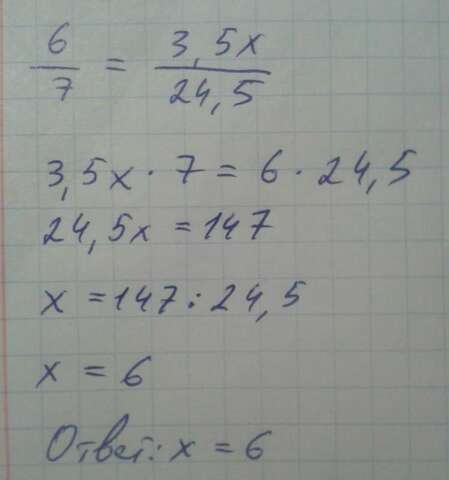 6/7 = 3,5x/24,5
3,5x · 7 = 6 · 24,5
24,5x = 147
x = 147 : 24,5
x = 6
Ответ: x = 6